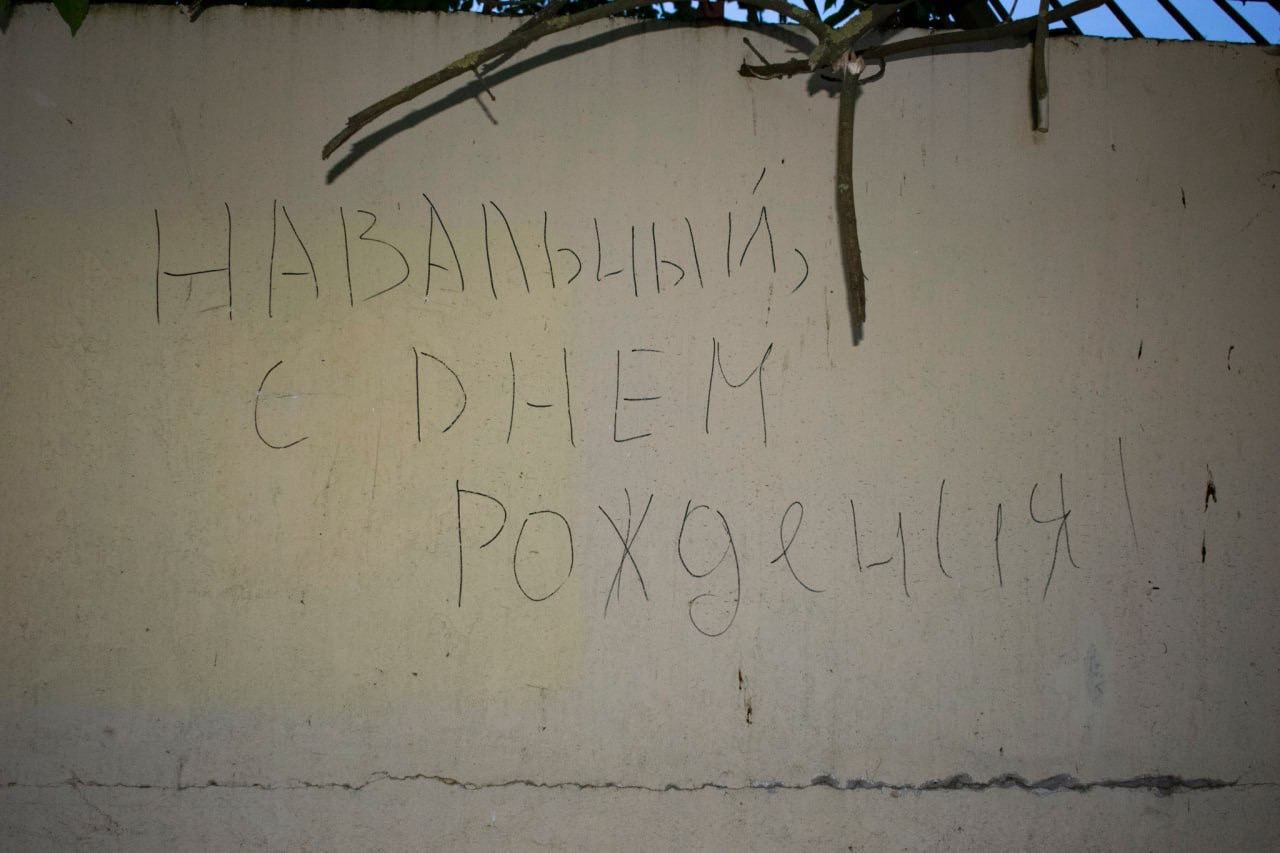 НАВАЛЬНЫЙ,
С DНЕМ
РОЖДЕНИЯ!